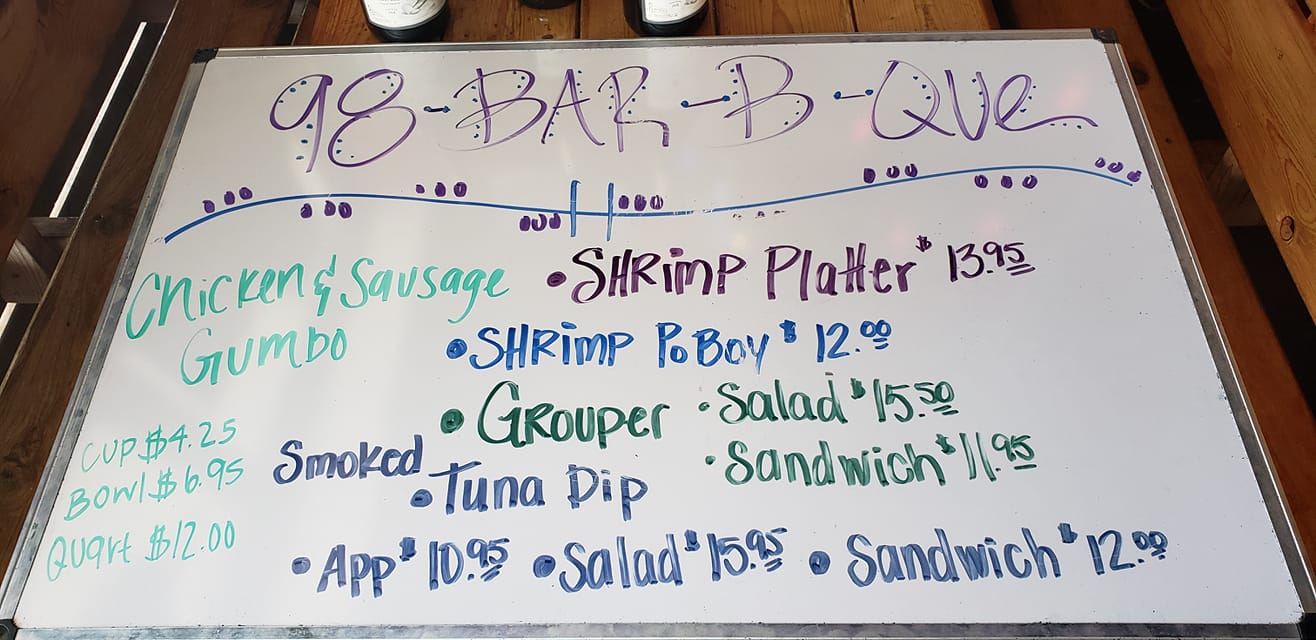 98-BAR-B-QUe
Chicken & Sausage
Gumbo
Cup $4.25
Bowl $6.95
Quart $12.00
• SHRimP Platter $13.95
• SHRimP PoBoy $12.00
• GRouper
• Salad $15.50
• Sandwich $11.95
Smoked
• Tuna Dip
• App $10.95 • Salad $15.95 • Sandwich $12.00